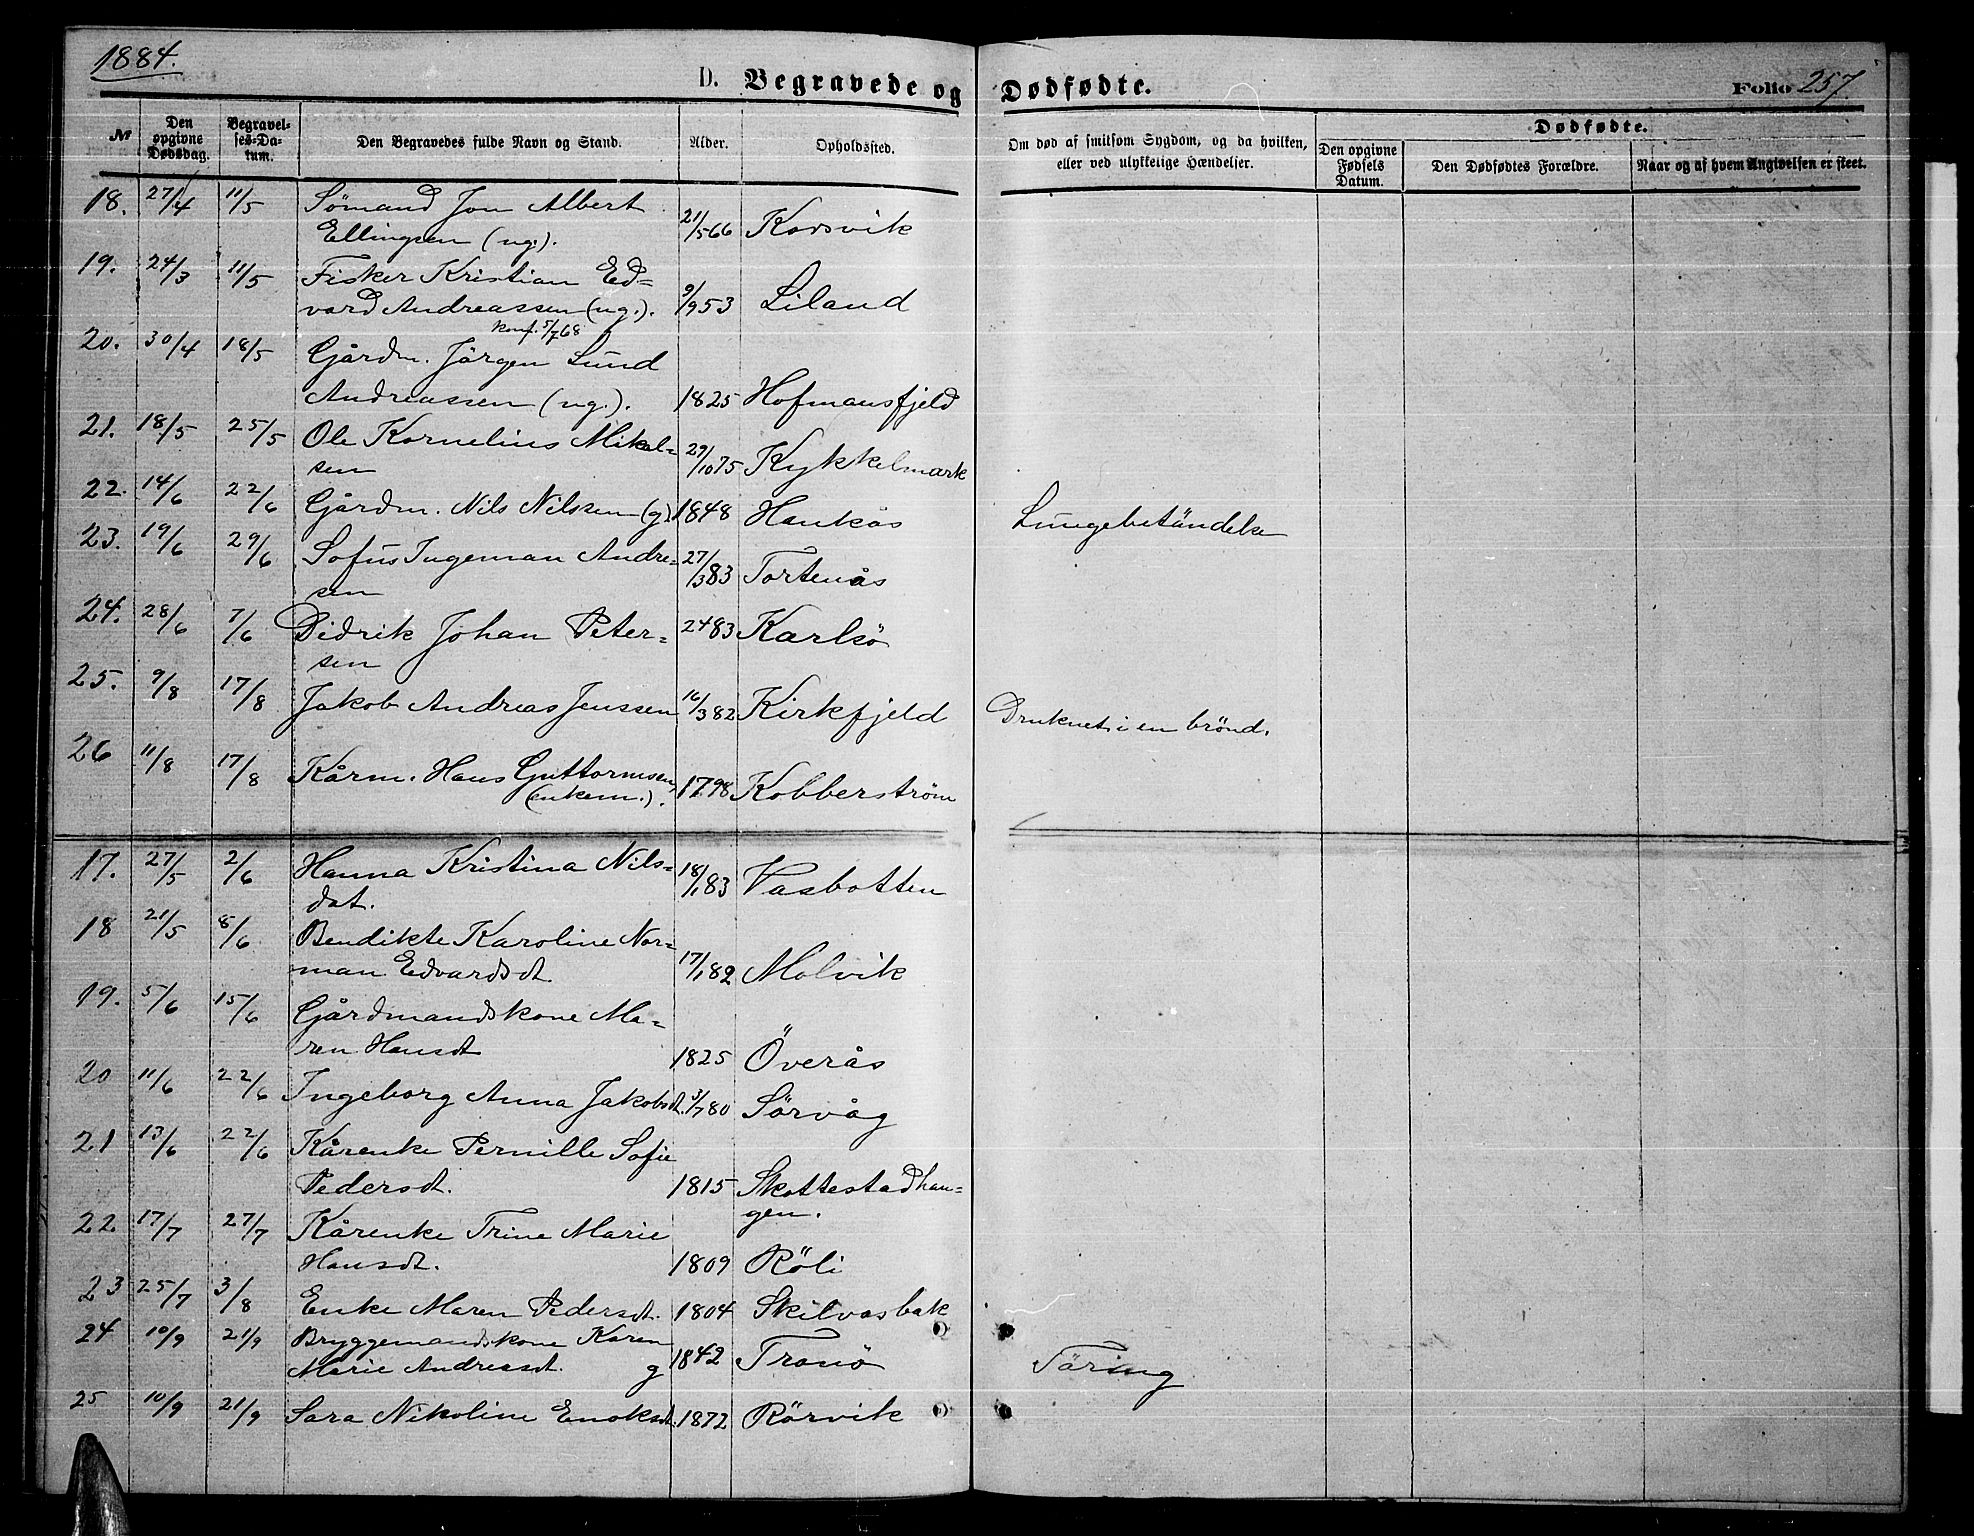 1884.
D. Begravede og Dødfødte.
Folio 257
№
Den opgivne Dødsdag.
Begravel-
ses-Da-
tum.
Den Begravedes fulde Navn og Stand.
Alder.
Opholdssted.
Om død af smitsom Sygdom, og da hvilken,
eller ved ulykkelige Hændelser.
Dødfødte.
Den opgivne
Fødsels
Datum.
Den Dødfødtes Forældre.
Naar og af hvem Angivelsen er skeet.
18. 27/4 11/5 Sömand Jon Albert
Ellingsen (ug.). 21/5 66 Korsvik
19. 24/3 11/5 Fisker Kristian Ed=
vard Andreassen (ug.). 9/9 53 Liland
konf. 5/7 68
20. 30/4 18/5 Gårdm. Jörgen Lund
Andreassen (ug.). 1825 Hofmansfjeld
21. 18/5 25/5 Ole Kornelius Mikal=
sen 29/10 75 Kykkelmark
22. 14/6 22/6 Gårdm. Nils Nilssen (g) 1848 Haukås Lungebetändelse
23. 19/6 29/6 Sofus Ingeman Andre=
sen 27/3 83 Tortenås
24. 28/6 7/6 Didrik Johan Peter=
sen 2483 Karlsö
25. 9/8 17/8 Jakob Andreas Jenssen 16/3 82 Kirkfjeld Druknet i en brönd.
26 11/8 17/8 Kårm. Hans Guttormsen
(enkem.). 1798 Kobberström
17. 27/5 2/6 Hanna Kristina Nils=
dat. 18/1 83 Vasbotten
18 21/5 8/6 Bendikte Karoline Nor=
man Edvardsdt 17/1 82 Molvik
19. 5/6 15/6 Gårdmandskone Ma=
ren Hansdt 1825 Överås
20 11/6 22/6 Ingeborg Anna Jakobsdt. 3/7 80 Sörvåg
21 13/6 22/6 Kårenke Pernille Sofie
Pedersdt. 1815 Skottestadhau=
gen.
22 17/7 27/7 Kårenke Trine Marie
Hansdt. 1809 Röli
23 25/7 3/8 Enke Maren Pedersdt. 1804 Skilvasbak
24 10/9 21/9 Bryggemandskone Karen
Marie Andreasdt. g 1842 Tranö Täring
25 10/9 21/9 Sara Nikoline Enoksdt. 1872 Rörvik